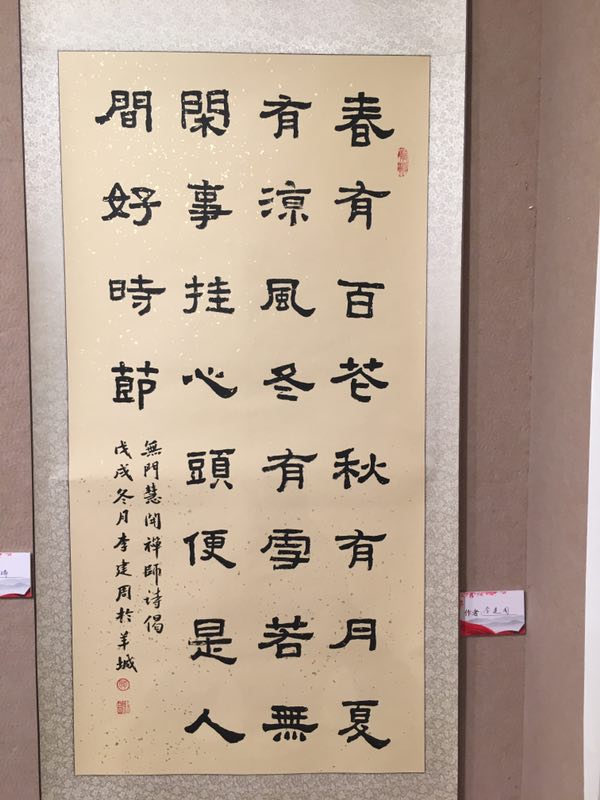 春有百花秋有月夏
有涼風冬有雪若無
閑事挂心頭便是人
間好時節
無門慧開禪師詩偈
戊戌冬月李建周於羊城
作者：李建周